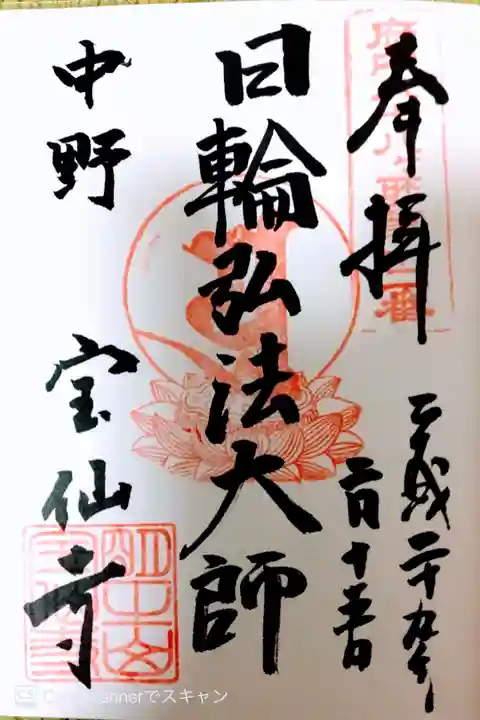 奉拝
平成二十九年
二月十五日
日輪弘法大師
中野 宝仙寺
明王山
宝仙寺
CS CamScannerでスキャン